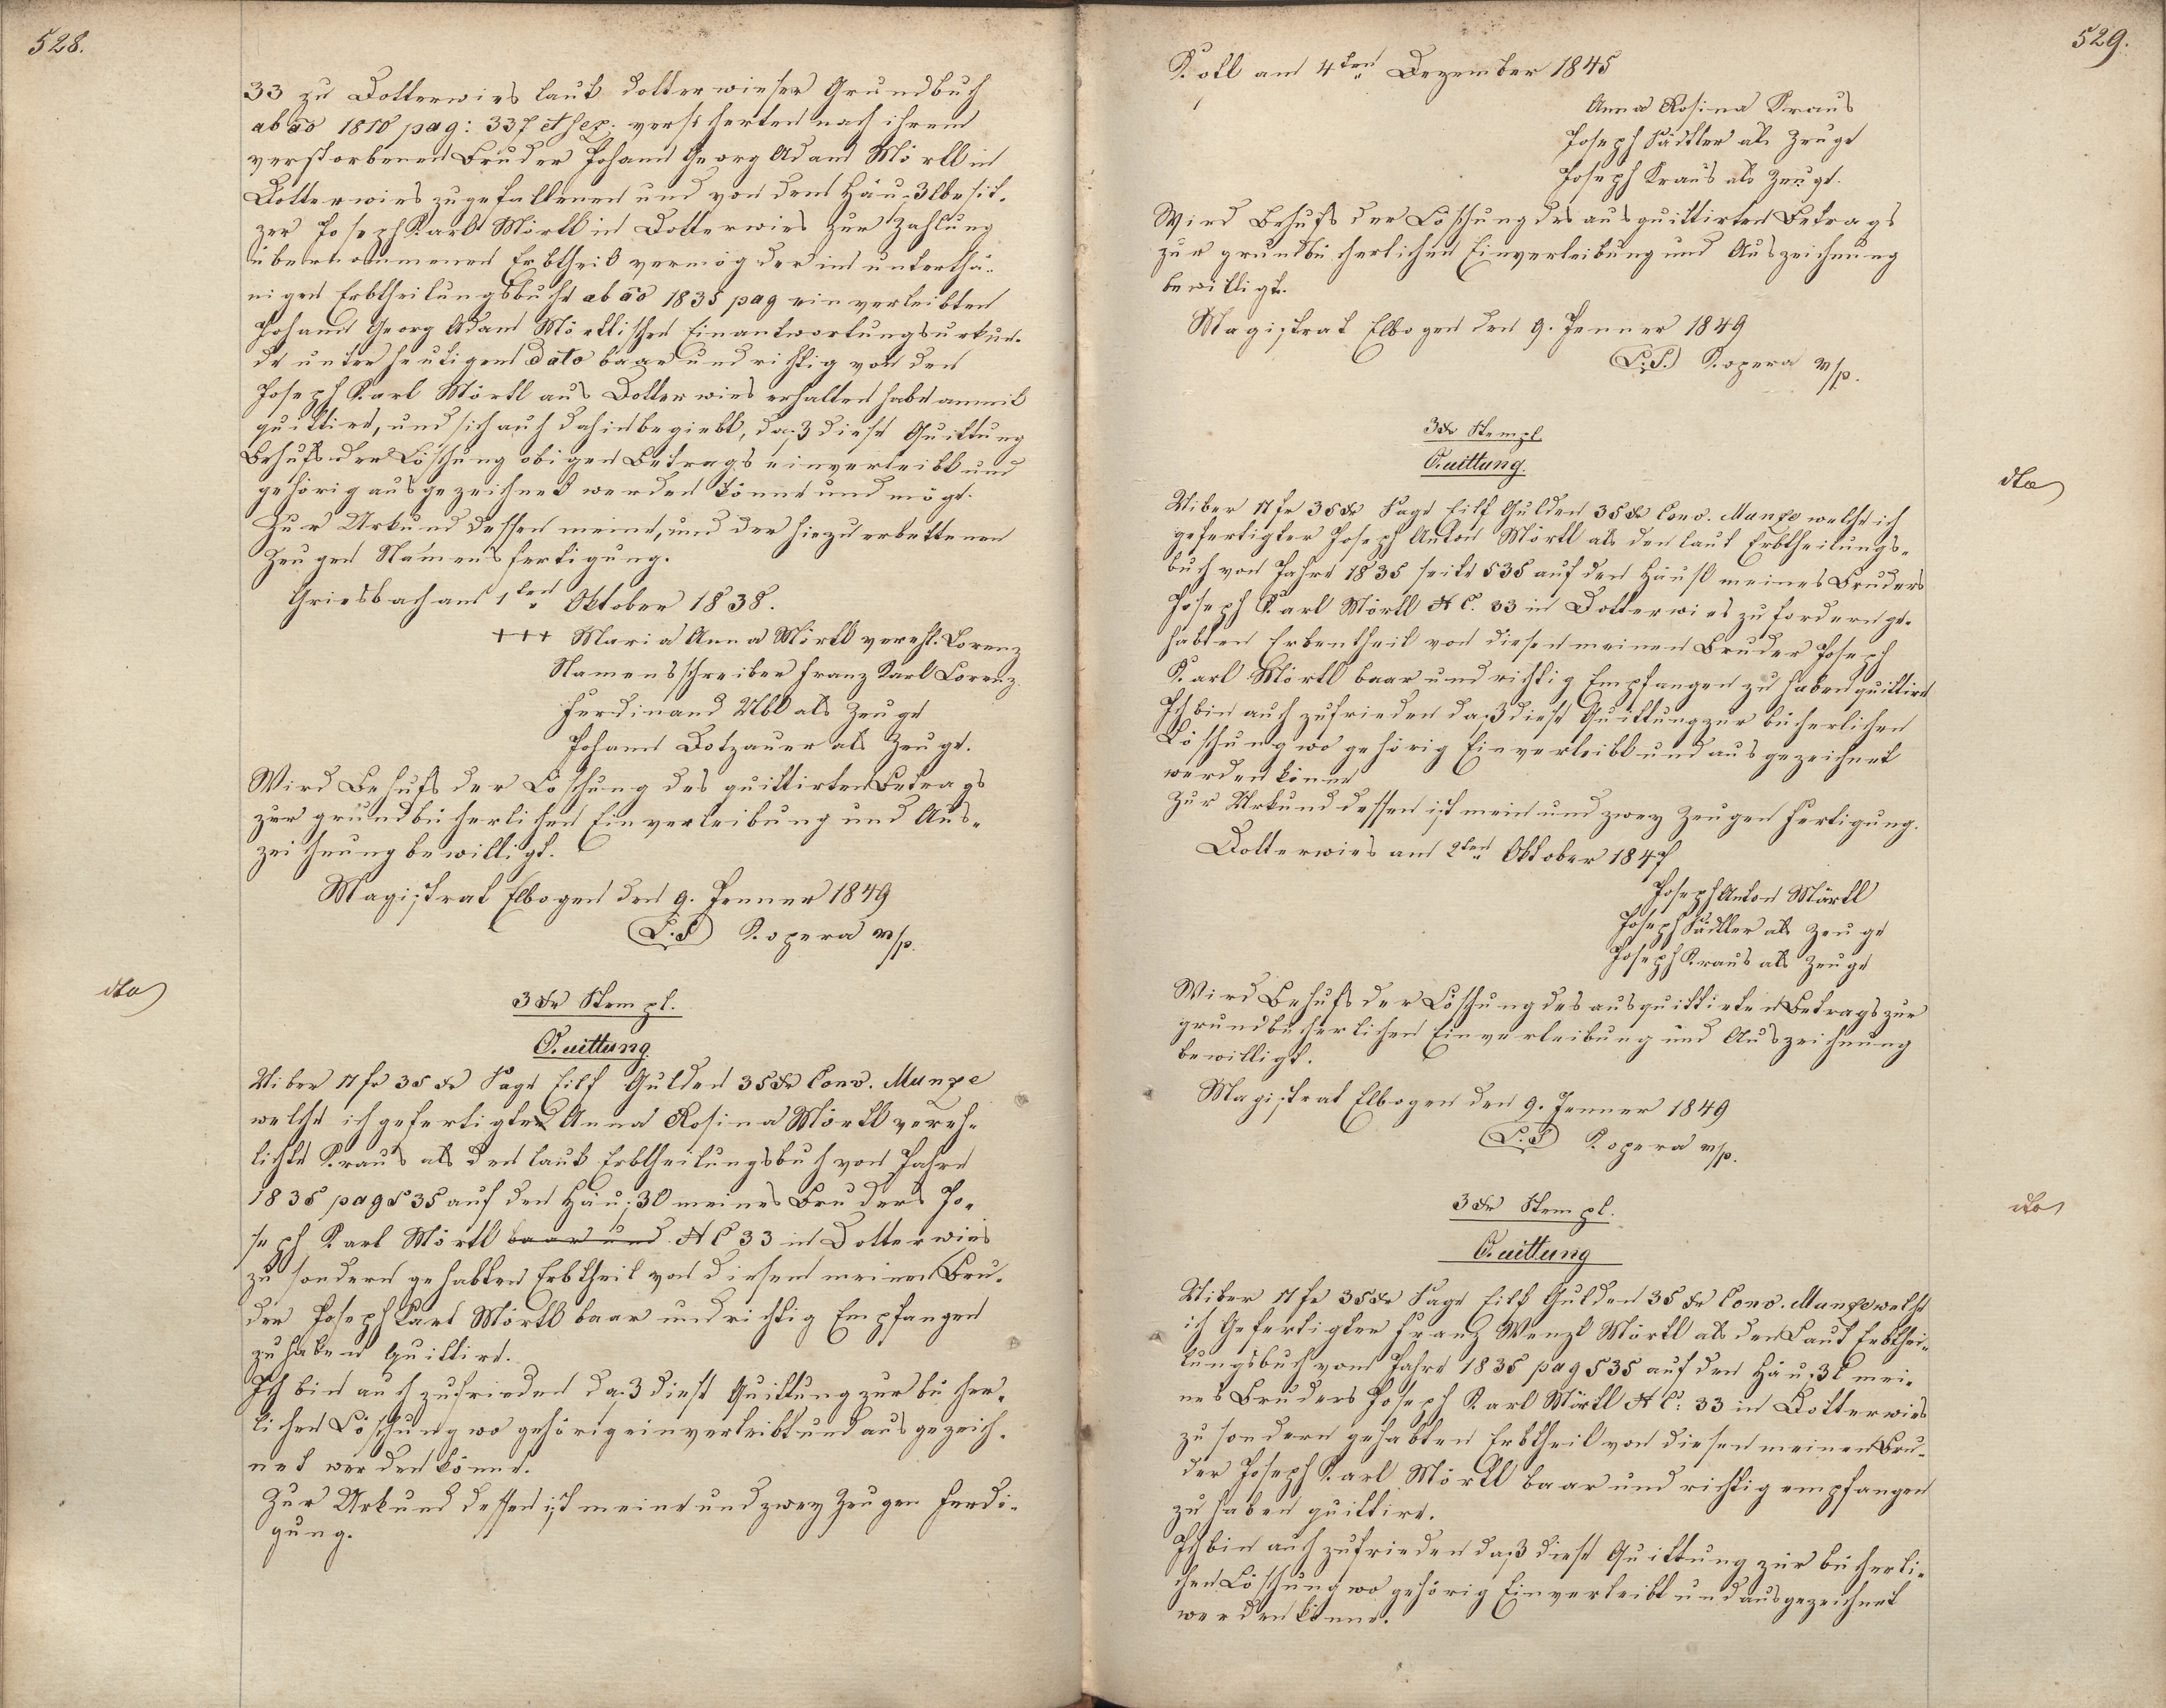 528.
33 zu Dotterwies laut dotterwieser Grundbuch
ab ao 1810 pag: 337 et seq. versicherten nach ihrem
verstorbenen Bruder Johann Georg Adam Mörtl in
Dotterwies zugefallenen und von dem Häußlbesit-
zer Joseph Karl Mörtl in Dotterwies zur Zahlung
übernommenen Erbtheil vermög der im unterthä-
nigen Erbtheilungsbuche ab ao 1835 pag einverleibten
Johann Georg Adam Mörtlischen Einantwortungsurkun-
de unter heutigem dato baar und richtig von dem
Joseph Karl Mörtl aus Dotterwies erhalten habe anmit
quittire, und sich auch dahin begiebt, daß diese Quittung
Behufs der Löschung obigen Betrags einverleibt und
gehörig ausgezeichnet werden könne und möge.
Zur Urkund dessen meine, und der hiezu erbettenen
Zeugen Namensfertigung.
Griesbach am 1ten Oktober 1838.
+++ Maria Anna Mörtl verehl. Lorenz
Namensschreiber Franz Karl Lorenz
Ferdinand Ubl als Zeuge
Johann Dotzauer als Zeuge.
Wird Behufs der Löschung des quittirten Betrags
zur grundbücherlichen Einverleibung und Aus-
zeichnung bewilligt.
Magistrat Elbogen den 9. Jenner 1849
(L.S) Kopera m/p.
dto
3 xr Stempl.
Quittung
Uiber 11 fr 35 xr Sage Eilf Gulden 35 xr Conv. Munze
welche ich gefertigte Anna Rosina Mörtl vereh-
lichte Kraus als den laut Erbtheilungsbuch von Jahre
1835 pag 535 auf den Häußl meines Bruders Jo-
seph Karl Mörtl baar und N C 33 in Dotterwies
zu fordern gehabten Erbtheil von diesem meinen Bru-
der Joseph Karl Mörtl baar und richtig Empfangen
zu haben quittire.
Ich bin auch zufrieden daß diese Quittung zur bücher-
lichen Löschung wo gehörig einverleibt und ausgezeich-
net werden könne.
Zur Urkund dessen ist meine und zwey Zeugen Ferdi-
gung.
529.
Kotl am 4ten Dezember 1845
Anna Rosina Kraus
Joseph Sädtler als Zeuge
Joseph Kraus als Zeuge.
Wird Behufs der Löschung des ausquittirten Betrags
zur grundbücherlichen Einverleibung und Auszeichnung
bewilligt.
Magistrat Elbogen den 9. Jenner 1849
(L.S.) Kopera m/p.
3 xr Stempl.
Quittung.
dto
Uiber 11 fr 35 xr Sage Eilf Gulden 35 xr Conv. Munze welche ich
gefertigter Joseph Anton Mörtl als den laut Erbtheilungs-
buch von Jahre 1835 seite 535 auf den Häusl meines Bruders
Joseph Karl Mörtl N C. 33 in Dotterwies zu fordern ge-
habten Erbentheil von diesen meinen Bruder Joseph
Karl Mörtl baar und richtig Empfangen zu haben quittire
Ich bin auch zufrieden daß diese Quittung zur bücherlichen
Löschung wo gehörig Einverleibt und ausgezeichnet
werden könne
Zur Urkund dessen ist mein und zwey Zeugen Fertigung.
Dotterwies am 2ten Oktober 1847
Joseph Anton Märtl
Joseph Sädtler als Zeuge
Joseph Kraus als Zeuge
Wird Behufs der Löschung des ausquittirten Betrags zur
grundbücherlichen Einverleibung und Auszeichnung
bewilligt.
Magistrat Elbogen den 9. Jenner 1849
(L.S) Kopera m/p.
3 xr Stempl.
dto
Quittung
Uiber 11 fr 35 xr Sage Eilf Gulden 35 xr Conv. Munze welche
ich Gefertigter Franz Wenzl Mörtl als den Laut Erbthei-
lungsbuch vom Jahre 1835 pag 535 auf den Häußl mei-
nes Bruders Joseph Karl Mörtl N C: 33 in Dotterwies
zu fordern gehabten Erbtheil von diesen meinen Bru-
der Joseph Karl Mörtl baar und richtig empfangen
zu haben quittire.
Ich bin auch zufrieden daß diese Quittung zur bücherli-
chen Löschung wo gehörig Einverleibt und ausgezeichnet
werden könne.